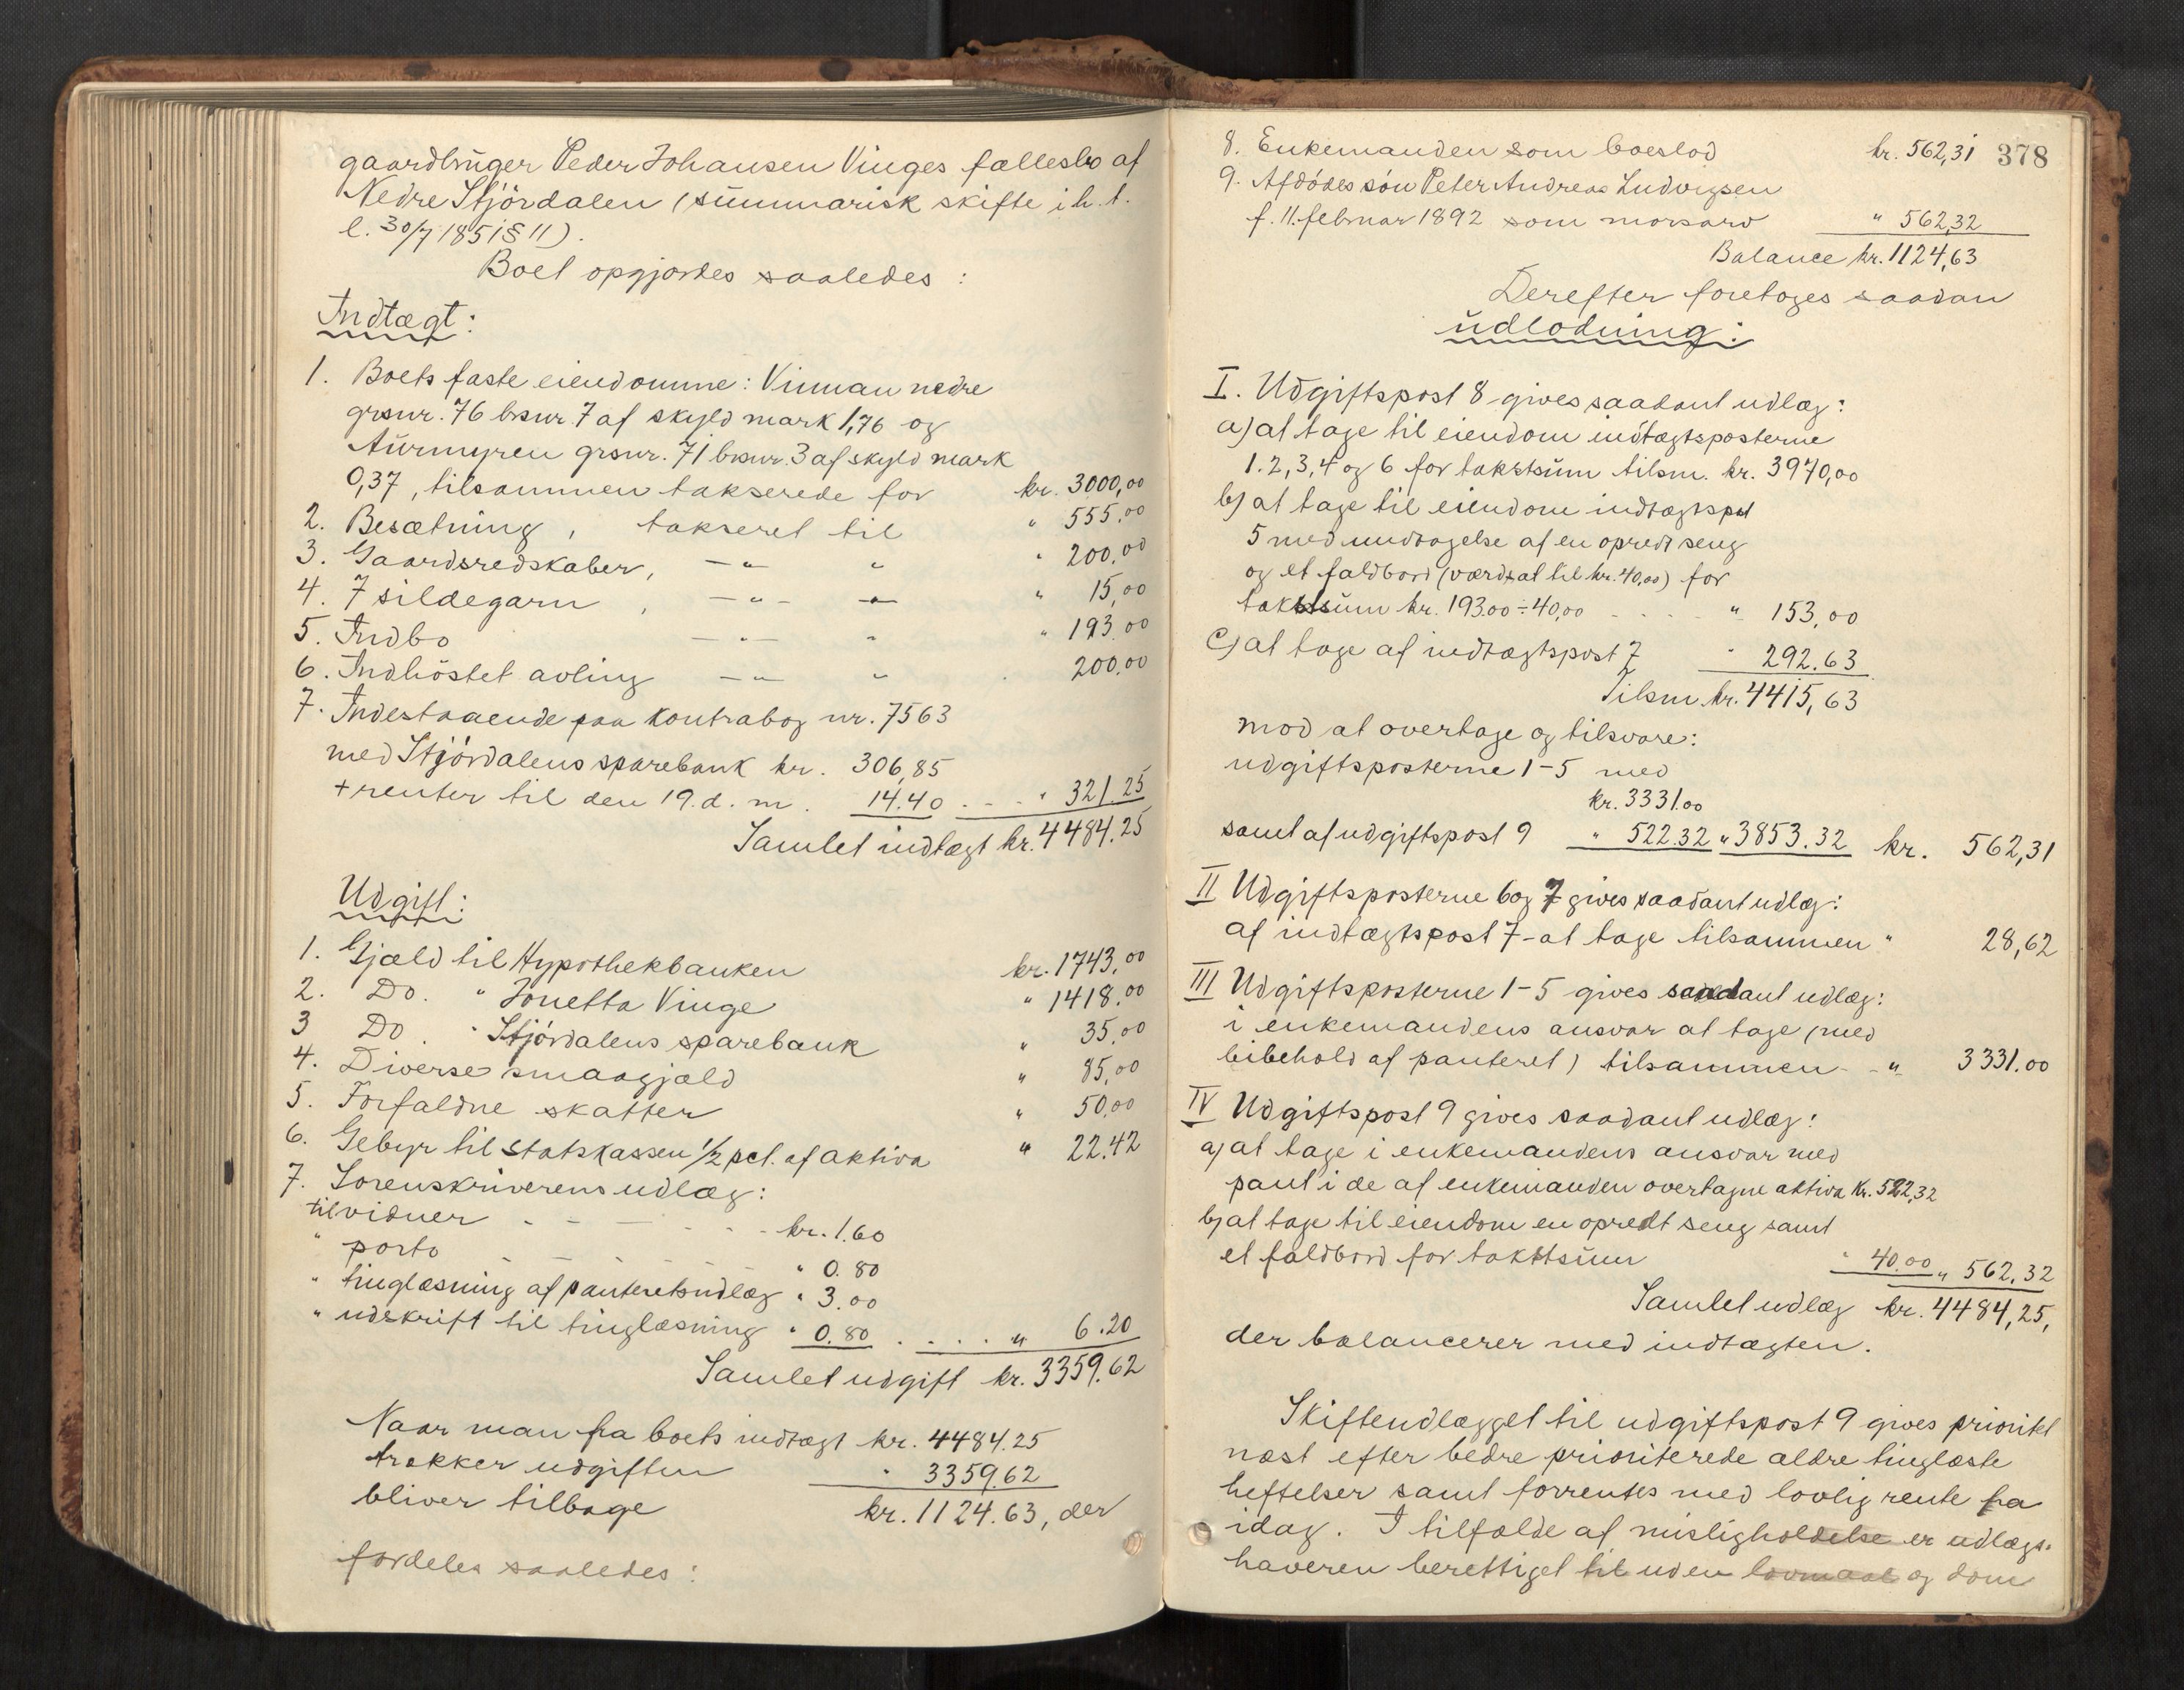 gaardbruger Peder Johansen Vinges fællesbo af
Nedre Stjördalen (summarisk skifte i h. t.
l. 30/7 1851 § 11).
Boet opgjordes saaledes :
Indtægt:
1. Boets faste eiendomme: Vinnan nedre
grsnr. 76 brsnr. 7 af skyld mark 1,76 og
Aurmyren grsnr. 71 brsnr. 3 af skyld mark
0,37, tilsammen takserede for kr. 3000,00
2. Besætning, takseret til " 555,00
3. Gaardsredskaber, —"— " " 200.00
4. 7 sildegarn , —"— " " 15,00
5. Indbo —"— " " 193.00
6. Indhöstet avling —"— " 200.00
7. Indestaaende paa Kontrabog nr. 7563
med Stjördalens sparebank kr. 306,85
+ renter til den 19. d. m. 14.40 . - - " 321.25
Samlet indtægt kr. 4484.25
Udgift:
1. Gjæld til Hypothekbanken kr. 1743,00
2. Do. " Jonetta Vinge " 1418.00
3 Do. " Stjördalens sparebank " 35,00
4. Diverse smaagjæld " 85,00
5. Forfaldne skatter " 50,00
6. Gebyr til Statskassen 1/2 pct. af aktiva " 22.42
7. Sorenskriverens udlæg:
til vidner - - - - - kr. 1.60
" porto - - - - - " 0.80
" tinglæsning af panteretsudlæg " 3.00
" udskrift til tinglæsning " 0.80 . . . . " 6.20
Samlet udgift kr. 3359.62
Naar man fra boets indtægt kr. 4484.25
trækker udgiften " 3359.62
bliver tilbage kr. 1124.63, der
fordeles saaledes :
8. Enkemanden som boeslod kr. 562,31 378
9. Afdödes sön Peter Andreas Ludvigsen
f. 11. februar 1892 som morsarv " 562,32
Balance kr. 1124,63
Derefter foretoges saadan
udlodning:
I. Udgiftspost 8 gives saadant udlæg:
a) at tage til eiendom indtægtsposterne
1. 2, 3, 4 og 6 for takstsum tilsm. kr. 3970,00
b) at tage til eiendom indtægtspost
5 med undtagelse af en opredt seng
og et faldbord (værdsat til kr. 40,00) for
takstsum kr. 193.00 ÷ 40,00 - - - - " 153,00
c) at tage af indtægtspost 7 " 292.63
Tilsm. kr. 4415,63
mod at overtage og tilsvare:
udgiftsposterne 1-5 med
kr. 3331.00
samt af udgiftspost 9 " 522.32 " 3853.32 kr. 562,31
II Udgiftsposterne 6 og 7 gives saadant udlæg:
af indtægtspost 7 - at tage tilsammen " 28,62
III Udgiftsposterne 1-5 gives saadant udlæg:
i enkemandens ansvar at tage (med
bibehold af panteret) tilsammen - " 3331.00
IV Udgiftspost 9 gives saadant udlæg:
a) at tage i enkemandens ansvar med
pant i de af enkemanden overtagne aktiva kr. 522,32
b) at tage til eiendom en opredt seng samt
et faldbord for takstsum " 40.00 " 562,32
Samlet udlæg kr. 4484,25,
der balancerer med indtægten.
Skifteudlægget til udgiftspost 9 gives prioritet
næst efter bedre prioriterede ældre tinglæste
heftelser samt forrentes med lovlig rente fra
idag. I tilfælde af misligholdelse er udlægs-
haveren berettiget til uden lovmaal og dom